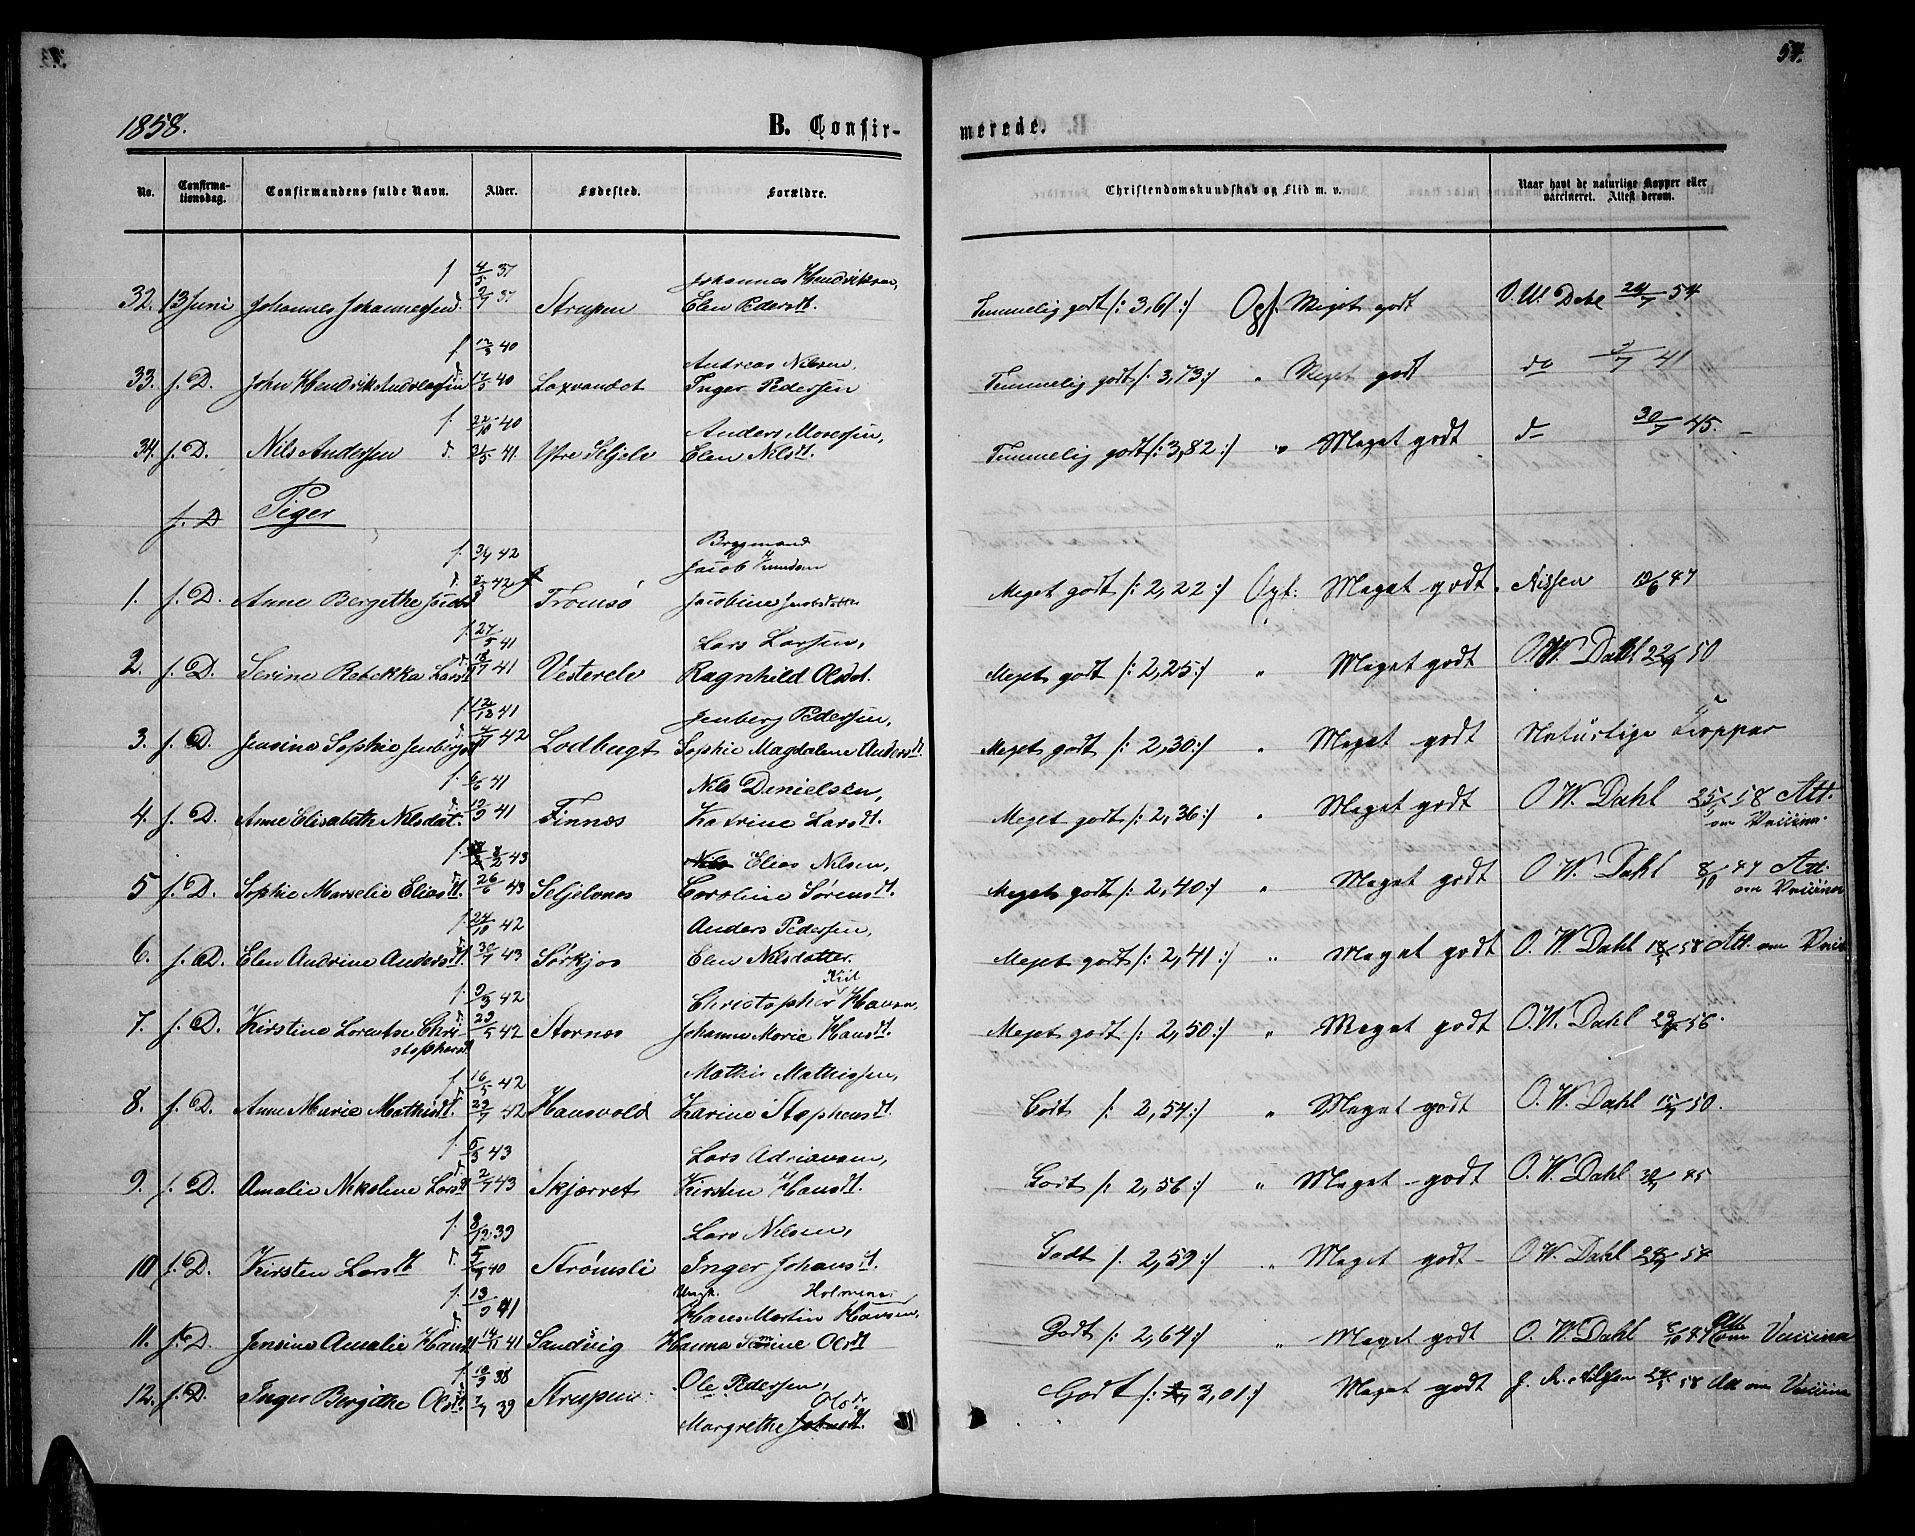 54.
1858. B. Confir- merede.
No. Confirma-tionsdag. Confirmandens fulde Navn. Alder. Fødested. Forældre. Christendomskundskab og Flid m. v. Naar havt de naturlige Kopper eller vaccineret. Attest derom.
f. 4/5 37 Johannes Hendriksen,
32. 13 Juni Johannes Johannessen d. 2/7 37 Strupen Elen Pedersdt. Temmelig godt /: 3,61 :/ Opf. Meget godt O. W. Dahl 24/7 54
f. 12/3 40 Andreas Nilsen,
33. f. D. John Hendrik Andreassen d. 17/5 40 Laxvandet Inger Pedersen Temmelig godt /: 3,73 :/ " Meget godt do 3/7 41
f. 22/10 40 Anders Mosessen,
34. f. D. Nils Andersen d. 21/5 41. Ytre Seljelv Elen Nilsdt. Temmelig godt /: 3,82 :/ " Meget godt do 30/7 45.
f. D Piger
Brygmand
f. 3/4 42 Jacob
1. f. D. Anne Bergethe d. 42 Tromsø Jacobine Jacobsdatter Meget godt /: 2,22 :/ Opf. Meget godt. Nissen 19/6 47
f. 27/5 41 Lars Larsen,
2. f. D. Serine Rebekka Larsdt d. 18/7 41 Vesterelv Ragnhild Olsdt. Meget godt /: 2,25 :/ " Meget godt O. W. Dahl 22/9 50
f. 12/12 41 Jenberg Pedersen,
3. f. D. Jensine Sophie d. 42 Lodbugt Sophie Magdalene Andersdt Meget godt /: 2,30 :/ " Meget godt Naturlige Kopper
f. 6/6 41 Nils Danielsen,
4. f. D. Anne Elisabeth Nilsdat. d. 12/9 41 Finnæs Katrine Larsdt. Meget godt /: 2,36 :/ " Meget godt O W. Dahl 25/5 58 Att.
om Vaccina
f. 8/2 43 Elias Nilsen,
5 f. D. Sophie Marselie Eliasdt. d. 26/6 43 Seljelvnes Caroline Sørensdt. Meget godt /: 2,40 :/ " Meget godt O. W. Dahl 8/10 47 Att.
om Vaccina
f. 24/10 42 Anders Pedersen,
6. f. D. Elen Andrine Andersdt. d. 30/7 43 Sørkjos Elen Nilsdatter. Meget godt /: 2,41 :/ " Meget godt O. W. Dahl 18/5 58 Att. om
Kiil
f. 9/3 42 Christopher Hansen,
7. f. D. Kirstine Lorentse Chri- d. 29/5 42 Stornæs Johanne Marie Hansdt. Meget godt /: 2,50 :/ " Meget godt O. W. Dahl 56.
stophersdt
f. 16/5 42 Mathis Mathissen,
8. f. D. Anne Marie Mathisdt. d. 29/7 42 Hansvold Karine Stephensdt. Godt /: 2,54 :/ " Meget godt O. W. Dahl 50.
f. 5/3 43 Lars Adriansen,
9. f. D. Amalie Nikoline Larsdt d. 2/7 43 Skjærret Kirsten Hansdt. Godt /: 2,56 :/ " Meget - godt O. W. Dahl 45
f. 8/12 39 Lars Nilsen,
10 f. D. Kirsten Larsdt d. 40 Strømsli Inger Johansdt. Godt /: 2,59 :/ " Meget godt - O. W. Dahl 54
Ungk. Holmenes
f. 13/9 41 Hans Martin Hansen,
11. f. D. Jensine Amalie Hansdt d. 14/11 41 Sandvig Hanna Serine Olsdt Godt /: 2,64 :/ " Meget godt O. W. Dahl 47 Att om Vaccina
f. 12/9 38 Ole Pedersen,
12. f. D. Inger Bergithe Olsdt d. 7/7 39 Strupen Olsdt. Godt /: 3,01 :/ Meget godt 58 Att om Vaccina
Margrethe